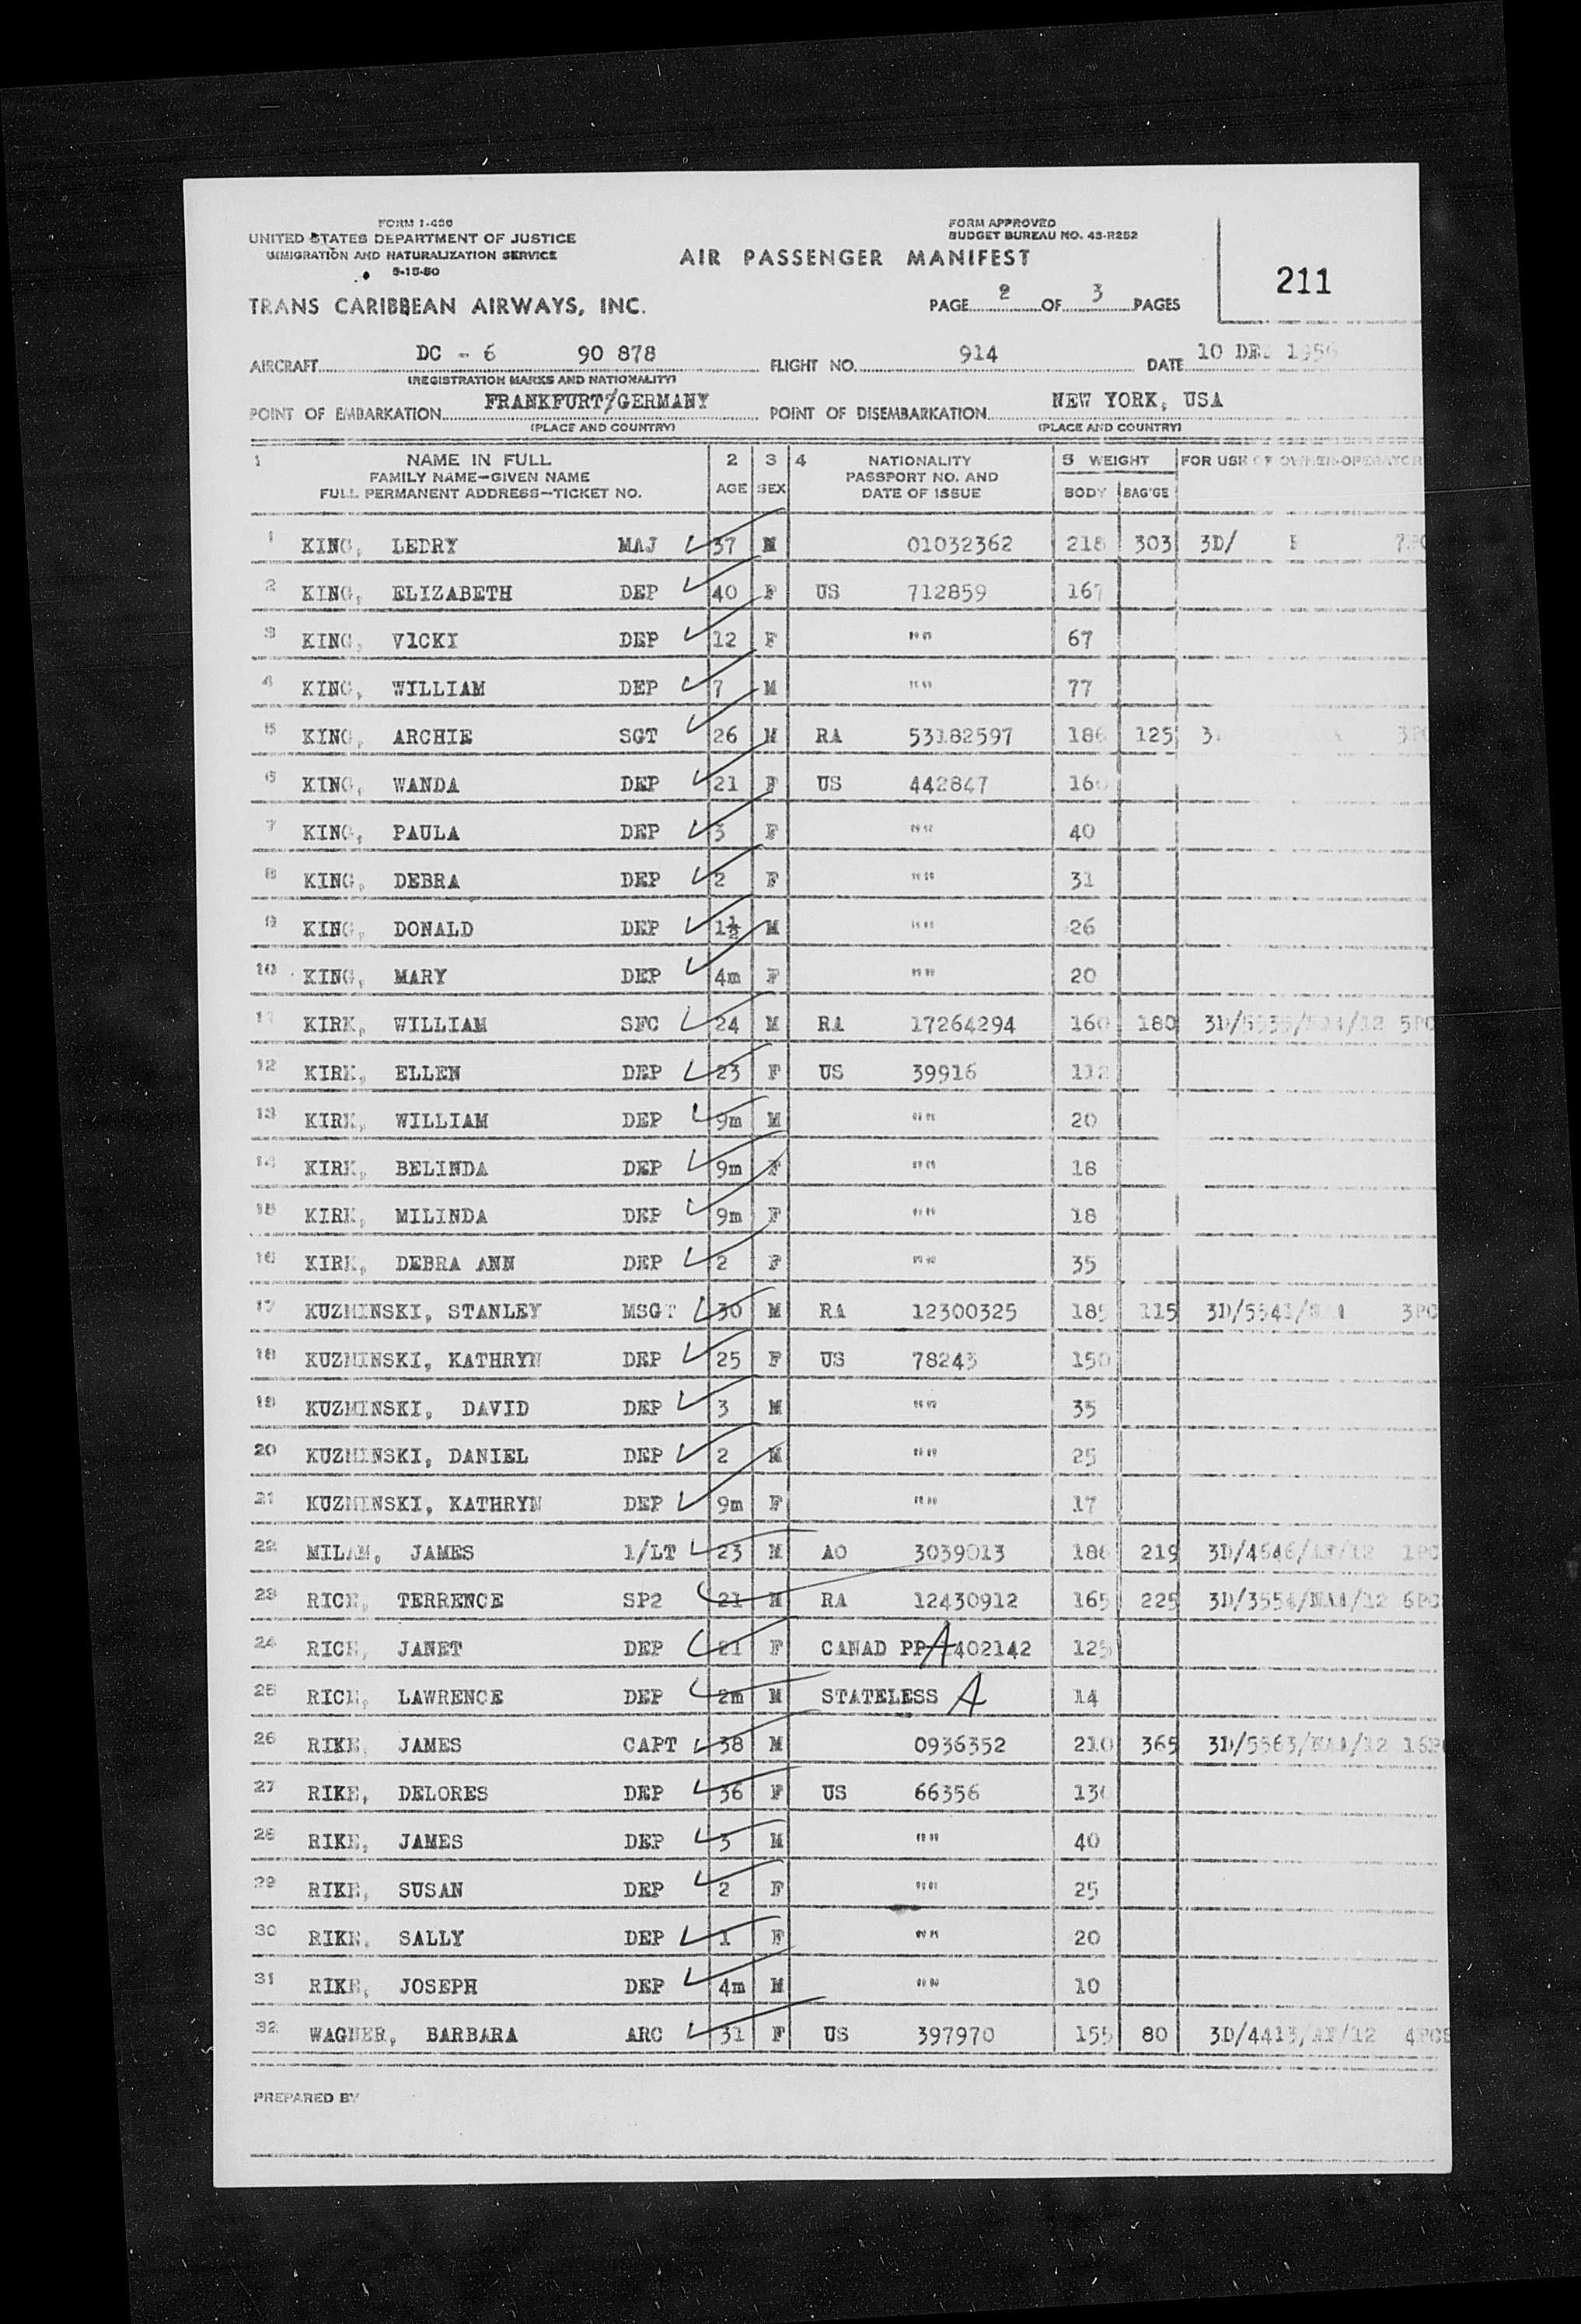 FORM I-436
UNITED STATES DEPARTMENT OF JUSTICE
IMMIGRATION AND NATURALIZATION SERVICE
5-15-50
FORM APPROVED
BUDGET BUREAU NO. 43-R252
AIR PASSENGER MANIFEST
211
TRANS CARIBBEAN AIRWAYS, INC.
PAGE 2 OF 3 PAGES
AIRCRAFT DC - 6 90 878 FLIGHT NO. 914 DATE 10 DEC
(REGISTRATION MARKS AND NATIONALITY)
POINT OF EMBARKATION FRANKFURT/GERMANY POINT OF DISEMBARKATION NEW YORK, USA
(PLACE AND COUNTRY) (PLACE AND COUNTRY)
1 NAME IN FULL 2 3 4 NATIONALITY 5 WEIGHT FOR USE OF OWNER-OPERATOR
FAMILY NAME—GIVEN NAME PASSPORT NO. AND
FULL PERMANENT ADDRESS—TICKET NO. AGE SEX DATE OF ISSUE BODY BAG'GE
1 KING, LEDRY MAJ 37 M 01032362 218 303 3D/
2 KING, ELIZABETH DEP 40 F US 712859 167
3 KING, V1CKI DEP 12 F "" 67
4 KING, WILLIAM DEP 7 M "" 77
5 KING, ARCHIE SGT 26 M RA 53182597 186 125
6 KING, WANDA DEP 21 F US 442847 160
7 KING, PAULA DEP 3 F "" 40
8 KING, DEBRA DEP 2 F "" 31
9 KING, DONALD DEP 1½ M "" 26
10 KING, MARY DEP 4m F "" 20
11 KIRK, WILLIAM SFC 24 M RA 17264294 160 180 5PC
12 KIRK, ELLEN DEP 23 F US 39916 112
13 KIRK, WILLIAM DEP 9m M "" 20
14 KIRK, BELINDA DEP 9m F "" 18
15 KIRK, MILINDA DEP 9m F "" 18
16 KIRK, DEBRA ANN DEP 2 F "" 35
17 KUZMINSKI, STANLEY MSGT 30 M RA 12300325 185 115 3PC
18 KUZMINSKI, KATHRYN DEP 25 F US 78243 150
19 KUZMINSKI, DAVID DEP 3 M "" 35
20 KUZMINSKI, DANIEL DEP 2 M "" 25
21 KUZMINSKI, KATHRYN DEP 9m F "" 17
22 MILAM, JAMES 1/LT 23 M AO 3039013 186 219 3D/4646/AF/12 1PC
23 RICH, TERRENCE SP2 21 M RA 12430912 165 225 3D/3554/NAA/12 6PC
24 RICH, JANET DEP 21 F CANAD PP A 402142 125
25 RICH, LAWRENCE DEP 2m M STATELESS A 14
26 RIKE, JAMES CAPT 38 M 0936352 210 365 3D/5563/NAA/12
27 RIKE, DELORES DEP 36 F US 66356 130
28 RIKE, JAMES DEP 3 M "" 40
29 RIKE, SUSAN DEP 2 F "" 25
30 RIKE, SALLY DEP 1 F "" 20
31 RIKE, JOSEPH DEP 4m M "" 10
32 WAGNER, BARBARA ARC 31 F US 397970 155 80 3D/4413/AF/12 4PCS
PREPARED BY